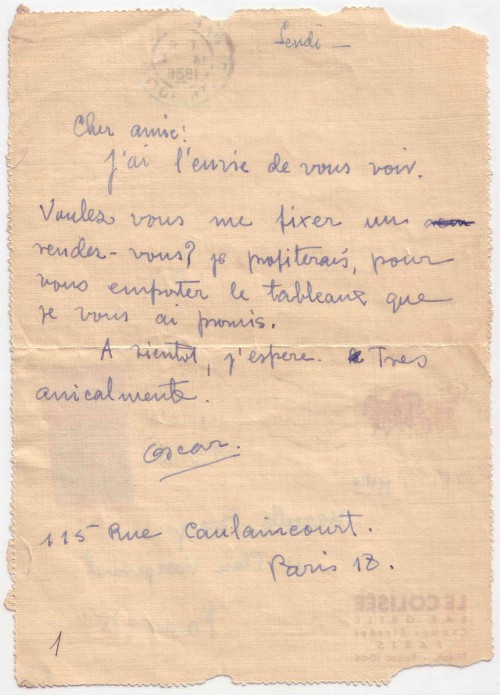 Lendi —
Cher amie!
J'ai l'envie de vous voir.
Voulez vous me fixer un
rendez-vous? je profiterais, pour
vous empoter le tableaux que
je vous ai promis.
A bientot, j'espere. Tres
amicalmente.
Oscar.
115 Rue Caulaincourt.
Paris 18.
LE COLISÉE
PARIS
1